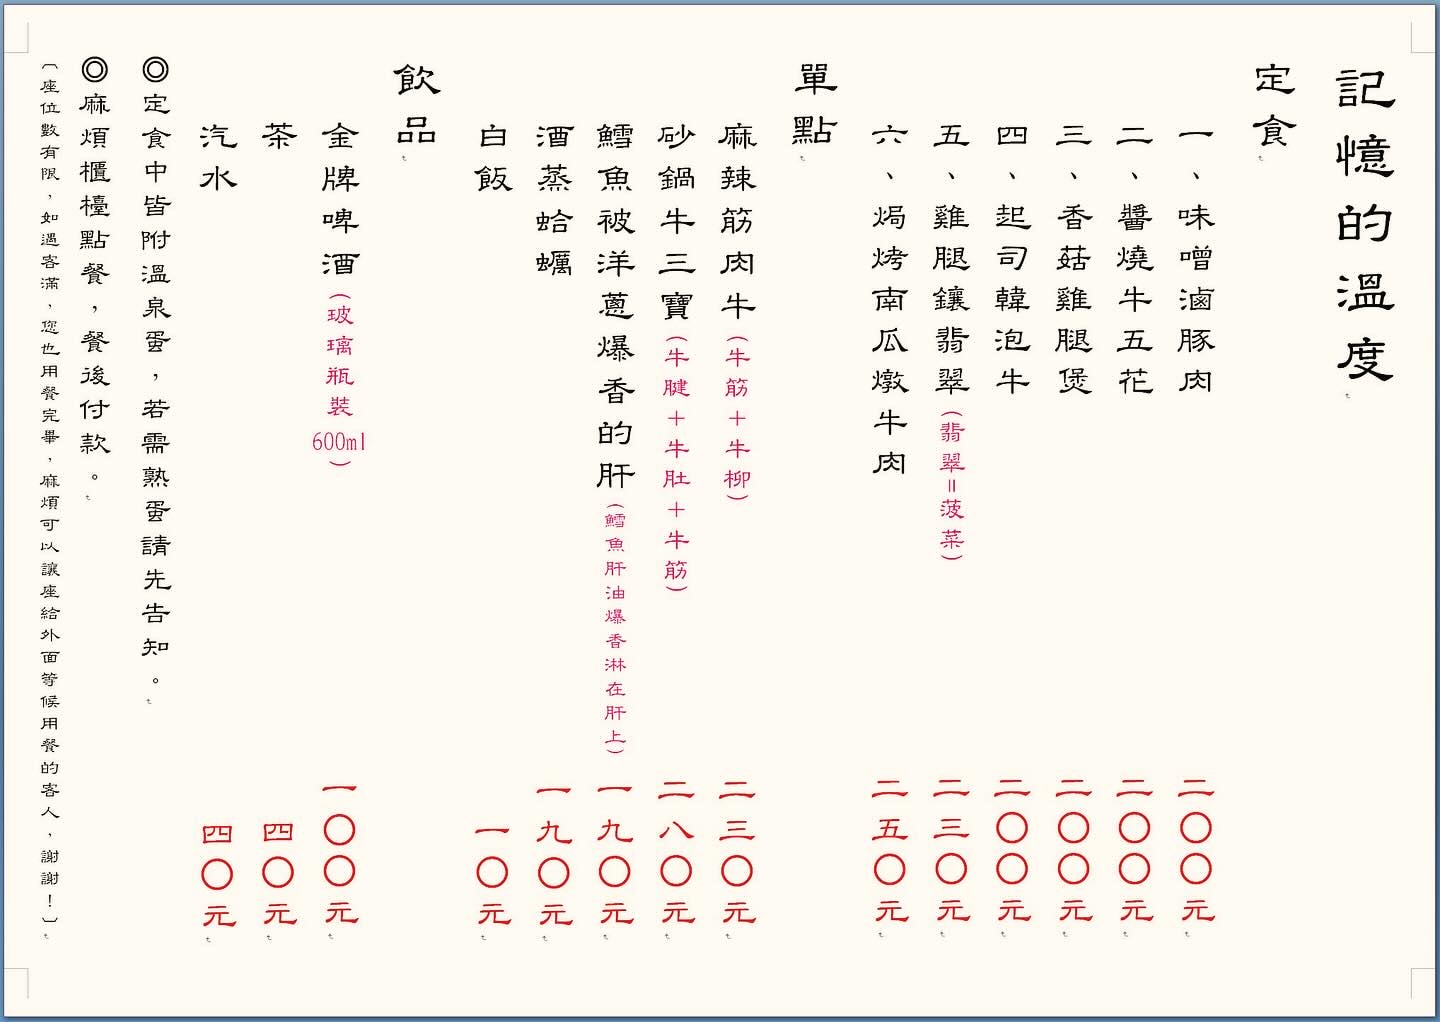 記憶的溫度
定食
一、味噌滷豚肉 二〇〇元
二、醬燒牛五花 二〇〇元
三、香菇雞腿煲 二〇〇元
四、起司韓泡牛 二〇〇元
五、雞腿鑲翡翠(翡翠=菠菜) 二三〇元
六、焗烤南瓜燉牛肉 二五〇元
單點
麻辣筋肉牛(牛筋+牛柳) 二三〇元
砂鍋牛三寶(牛腱+牛肚+牛筋) 二八〇元
鱈魚被洋蔥爆香的肝(鱈魚肝油爆香淋在肝上) 一九〇元
酒蒸蛤蠣 一九〇元
白飯 一〇元
飲品
金牌啤酒(玻璃瓶裝600ml) 一〇〇元
茶 四〇元
汽水 四〇元
◎定食中皆附溫泉蛋，若需熟蛋請先告知。
◎麻煩櫃檯點餐，餐後付款。
〔座位數有限，如遇客滿，您也用餐完畢，麻煩可以讓座給外面等候用餐的客人，謝謝！〕